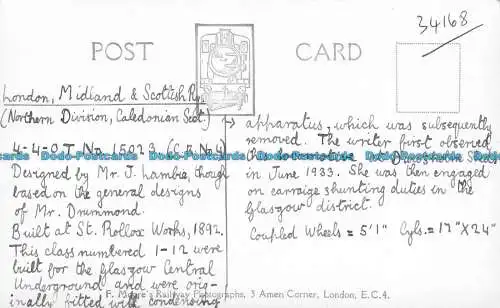 34168
POST CARD
London, Midland & Scottish Ry.
(Northern Division, Caledonian Sect.)
4-4-0T No. 15023 (C.R. No 4)
Designed by Mr. J. Lambie, though
based on the general designs
of Mr. Drummond.
Built at St. Rollox Works, 1892.
This class numbered 1-12 were
built for the Glasgow Central
Underground and were orig-
inally fitted with condensing
→ apparatus, which was subsequently
removed. The writer first observed
this locomotive at
in June 1933. She was then engaged
on carraige shunting duties in the
Glasgow district.
Coupled Wheels = 5'1" Cyls. = 17" x 24"
F. Moore's Railway Photographs, 3 Amen Corner, London, E.C.4.
Dodo-Postcards Dodo-Postcards Dodo-Postcards Dodo-Postcards